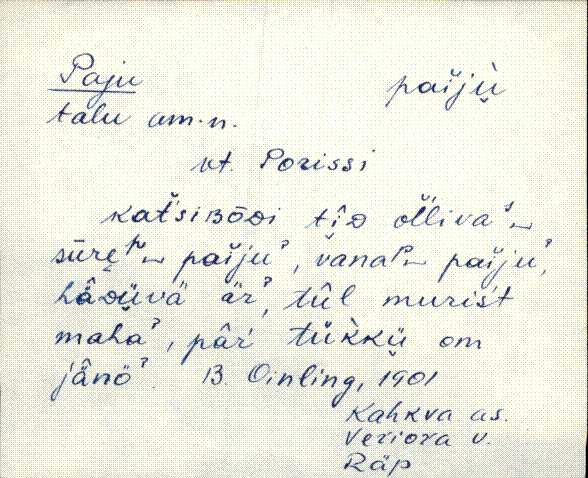 Paju paijù̬
talu am.n.
vt. Porissi
kat́siʙōᴅi tîᴅ ölliva ̮
sūre ̮ paiju ̓, vana ̮ paiju ̓,
hâᴅüvä är ̓, tûl murist
maha ̓, pâr tük̀kü om
jänö ̓. B. Oinling, 1901
Kahkva as.
Veriora v.
Räp